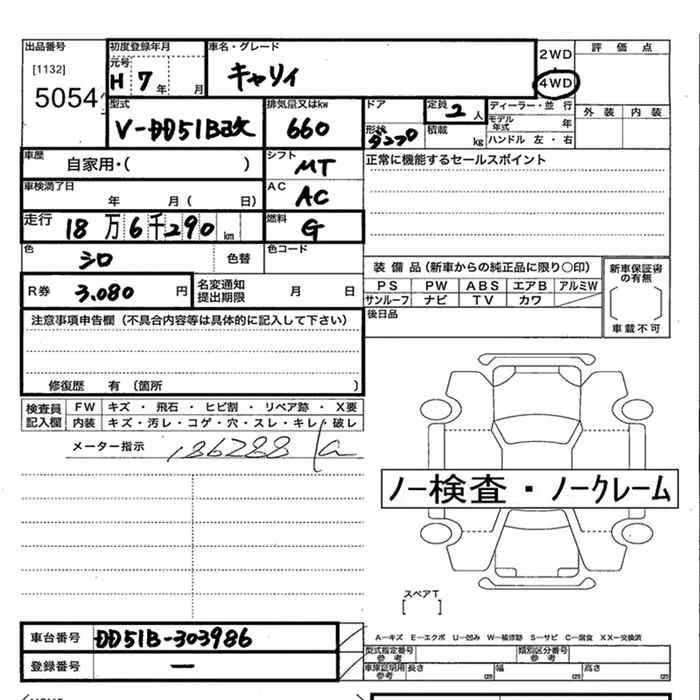 出品番号 初度登録年月 車名・グレード 2WD 評価点
[1132] 元号 キャリィ 4WD
5054 H 7年 月
型式 排気量又はkw ドア 定員 2人 ディーラー・並行 外装 内装
V-DD51B改 660 形状 ダンプ 積載 kg モデル年式 年
ハンドル 左・右
車歴 自家用・( ) シフト MT 正常に機能するセールスポイント
車検満了日 年 月( 日) AC AC
走行 18万6千290km 燃料 G
色 シロ 色替 色コード
装備品(新車からの純正品に限り〇印) 新車保証書の有無
R券 3.080円 名変通知提出期限 月 日 PS PW ABS エアB アルミW
サンルーフ ナビ TV カワ
注意事項申告欄(不具合内容等は具体的に記入して下さい) 後日品 車載不可
修復歴 有(箇所 )
検査員記入欄 FW キズ・飛石・ヒビ割・リペア跡・X要
内装 キズ・汚レ・コゲ・穴・スレ・キレ・破レ
メーター指示 186288
ノー検査・ノークレーム
スペアT
[ ]
車台番号 DD51B-303986 A-キズ E-エクボ U-凹み W-補修跡 S-サビ C-腐食 XX-交換済
型式指定番号 参考 類別区分番号 参考
登録番号 ー 車庫証明用 参考 長さ cm 幅 cm 高さ cm